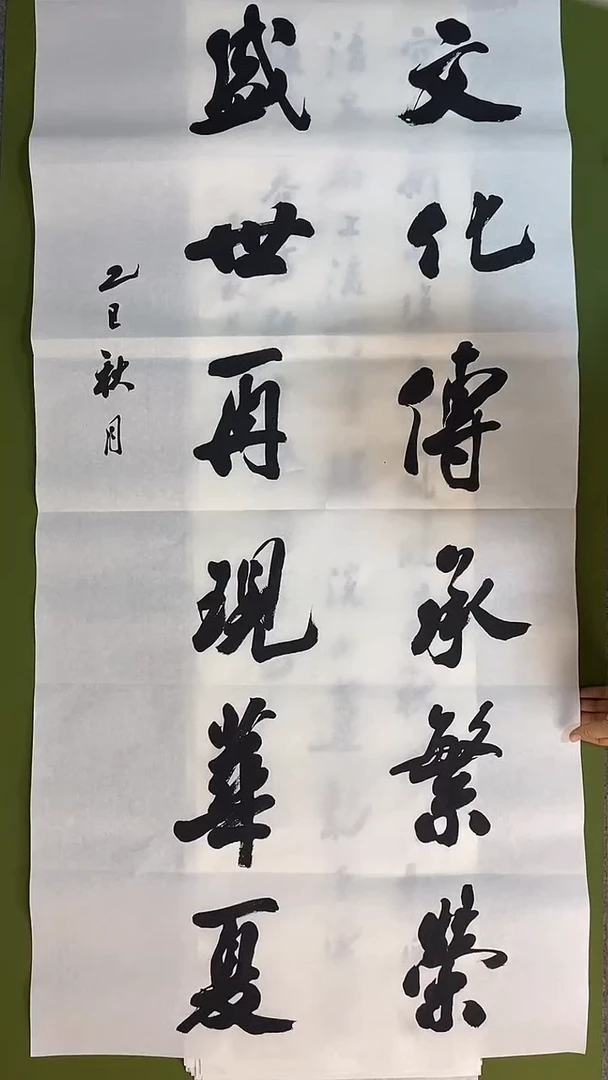 文化傳承繁榮
盛世再現華夏
乙巳秋月